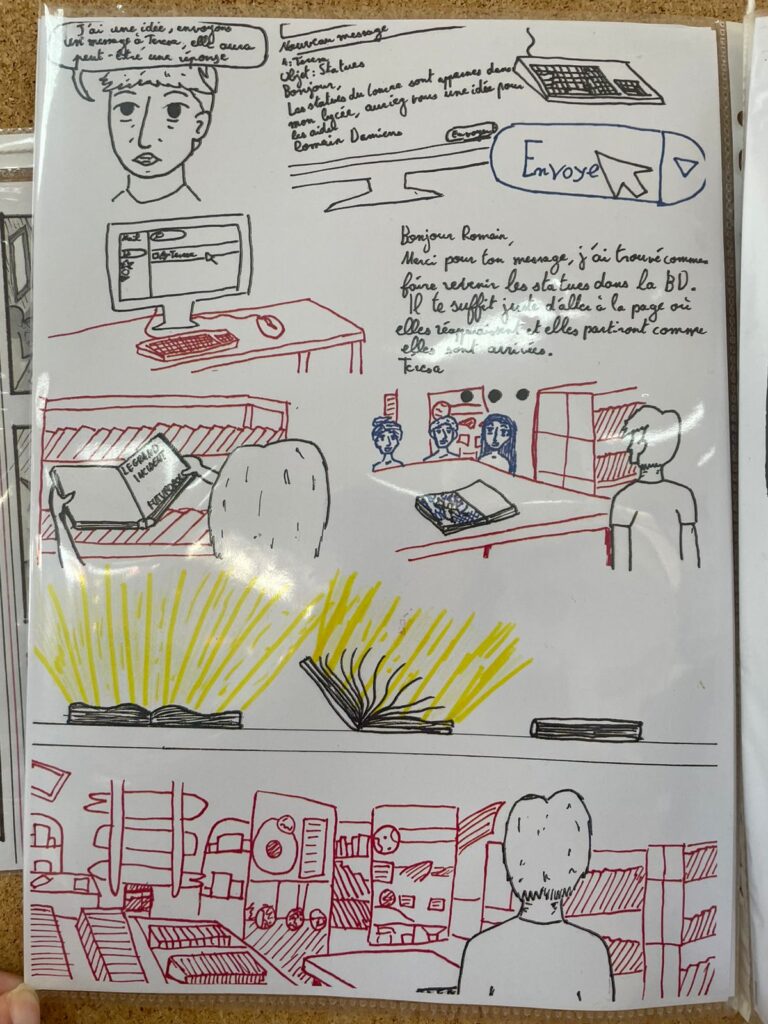 J'ai une idée, envoyons
un message à Teresa, elle aura
peut-être une réponse
Nouveau message
à: Teresa
Objet: Statues
Bonjour,
Les statues du Louvre sont apparues dans
mon lycée, auriez vous une idée pour
les aider
Romain Damiens
Envoyer
Envoye
Bonjour Romain,
Merci pour ton message, j'ai trouvé comment
faire revenir les statues dans la BD.
Il te suffit juste d'aller à la page où
elles réapparaissent et elles partiront comme
elles sont arrivées.
Teresa
Teresa
LE GRAND
INCIDENT